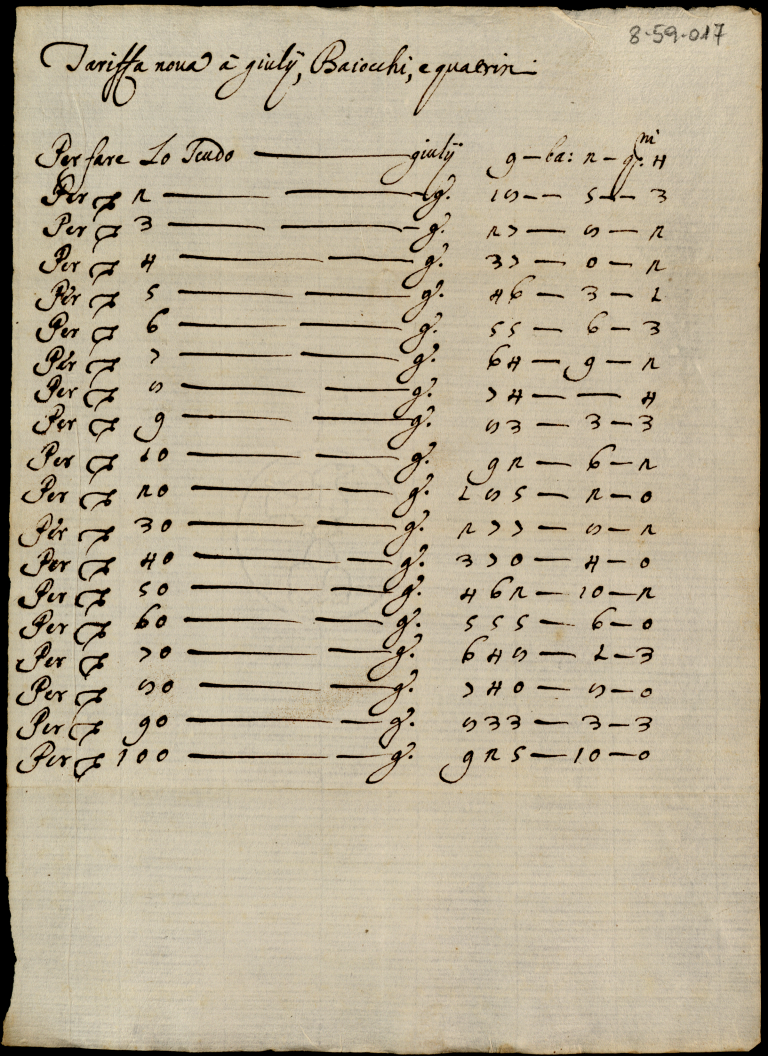 8-59-017
Tariffa noua à giulÿ, Baiocchi, e quatrin:
Per fare Lo Scudo — giulÿ 9 — ba: 2 — q.ni 4
Per 2 — — g. 18 — 5 — 3
Per 3 — — g. 27 — 8 — 2
Per 4 — — g. 37 — 0 — 2
Per 5 — — g. 46 — 3 — 1
Per 6 — — g. 55 — 6 — 3
Per 7 — — g. 64 — 9 — 2
Per 8 — — g. 74 — — 4
Per 9 — — g. 83 — 3 — 3
Per 10 — — g. 92 — 6 — 2
Per 20 — — g. 185 — 2 — 0
Per 30 — — g. 277 — 8 — 2
Per 40 — — g. 370 — 4 — 0
Per 50 — — g. 462 — 10 — 2
Per 60 — — g. 555 — 6 — 0
Per 70 — — g. 648 — 1 — 3
Per 80 — — g. 740 — 8 — 0
Per 90 — — g. 833 — 3 — 3
Per 100 — — g. 925 — 10 — 0